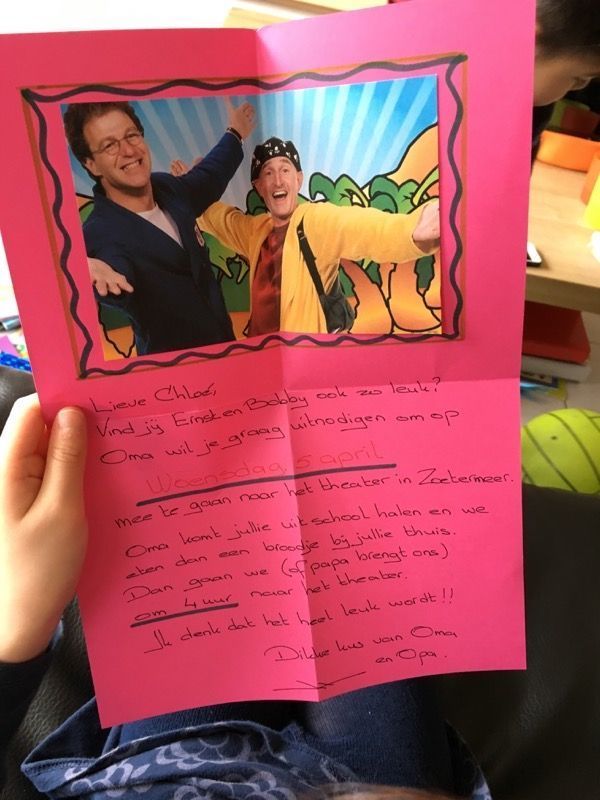 Lieve Chloé,
Vind jij Ernst en Bobby ook zo leuk?
Oma wil je graag uitnodigen om op
Woensdag 5 april
mee te gaan naar het theater in Zoetermeer.
Oma komt jullie uit school halen en we
eten dan een broodje bij jullie thuis.
Dan gaan we (of papa brengt ons)
om 4 uur naar het theater.
Ik denk dat het heel leuk wordt!!
Dikke kus van Oma
en Opa.